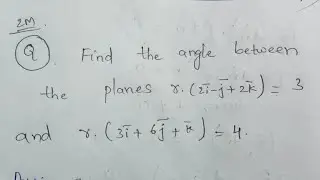 2M
Q Find the angle between
the planes r̄. (2ī-j̄+2k̄) = 3
and r̄. (3ī+6j̄+k̄) = 4.